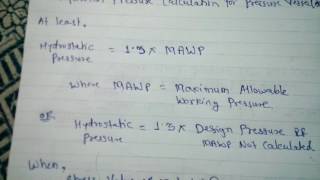 Pressure Calculation for Pressure Vessels
At least,
Hydrostatic Pressure = 1.3 x MAWP
Where MAWP = Maximum Allowable
Working Pressure
OR
Hydrostatic Pressure = 1.3 x Design Pressure If
MAWP Not Calculated
When,